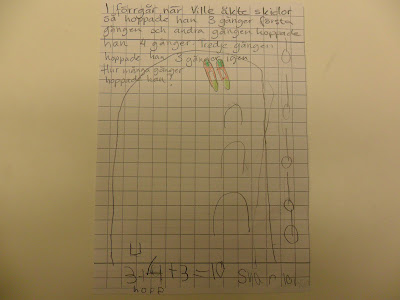 I förrgår när Ville åkte skidor
så hoppade han 3 gånger första
gången och andra gången hoppade
han 4 gånger. Tredje gången
hoppade han 3 gånger igen.
Hur många gånger
hoppade han?
3+4+3=10
hopp